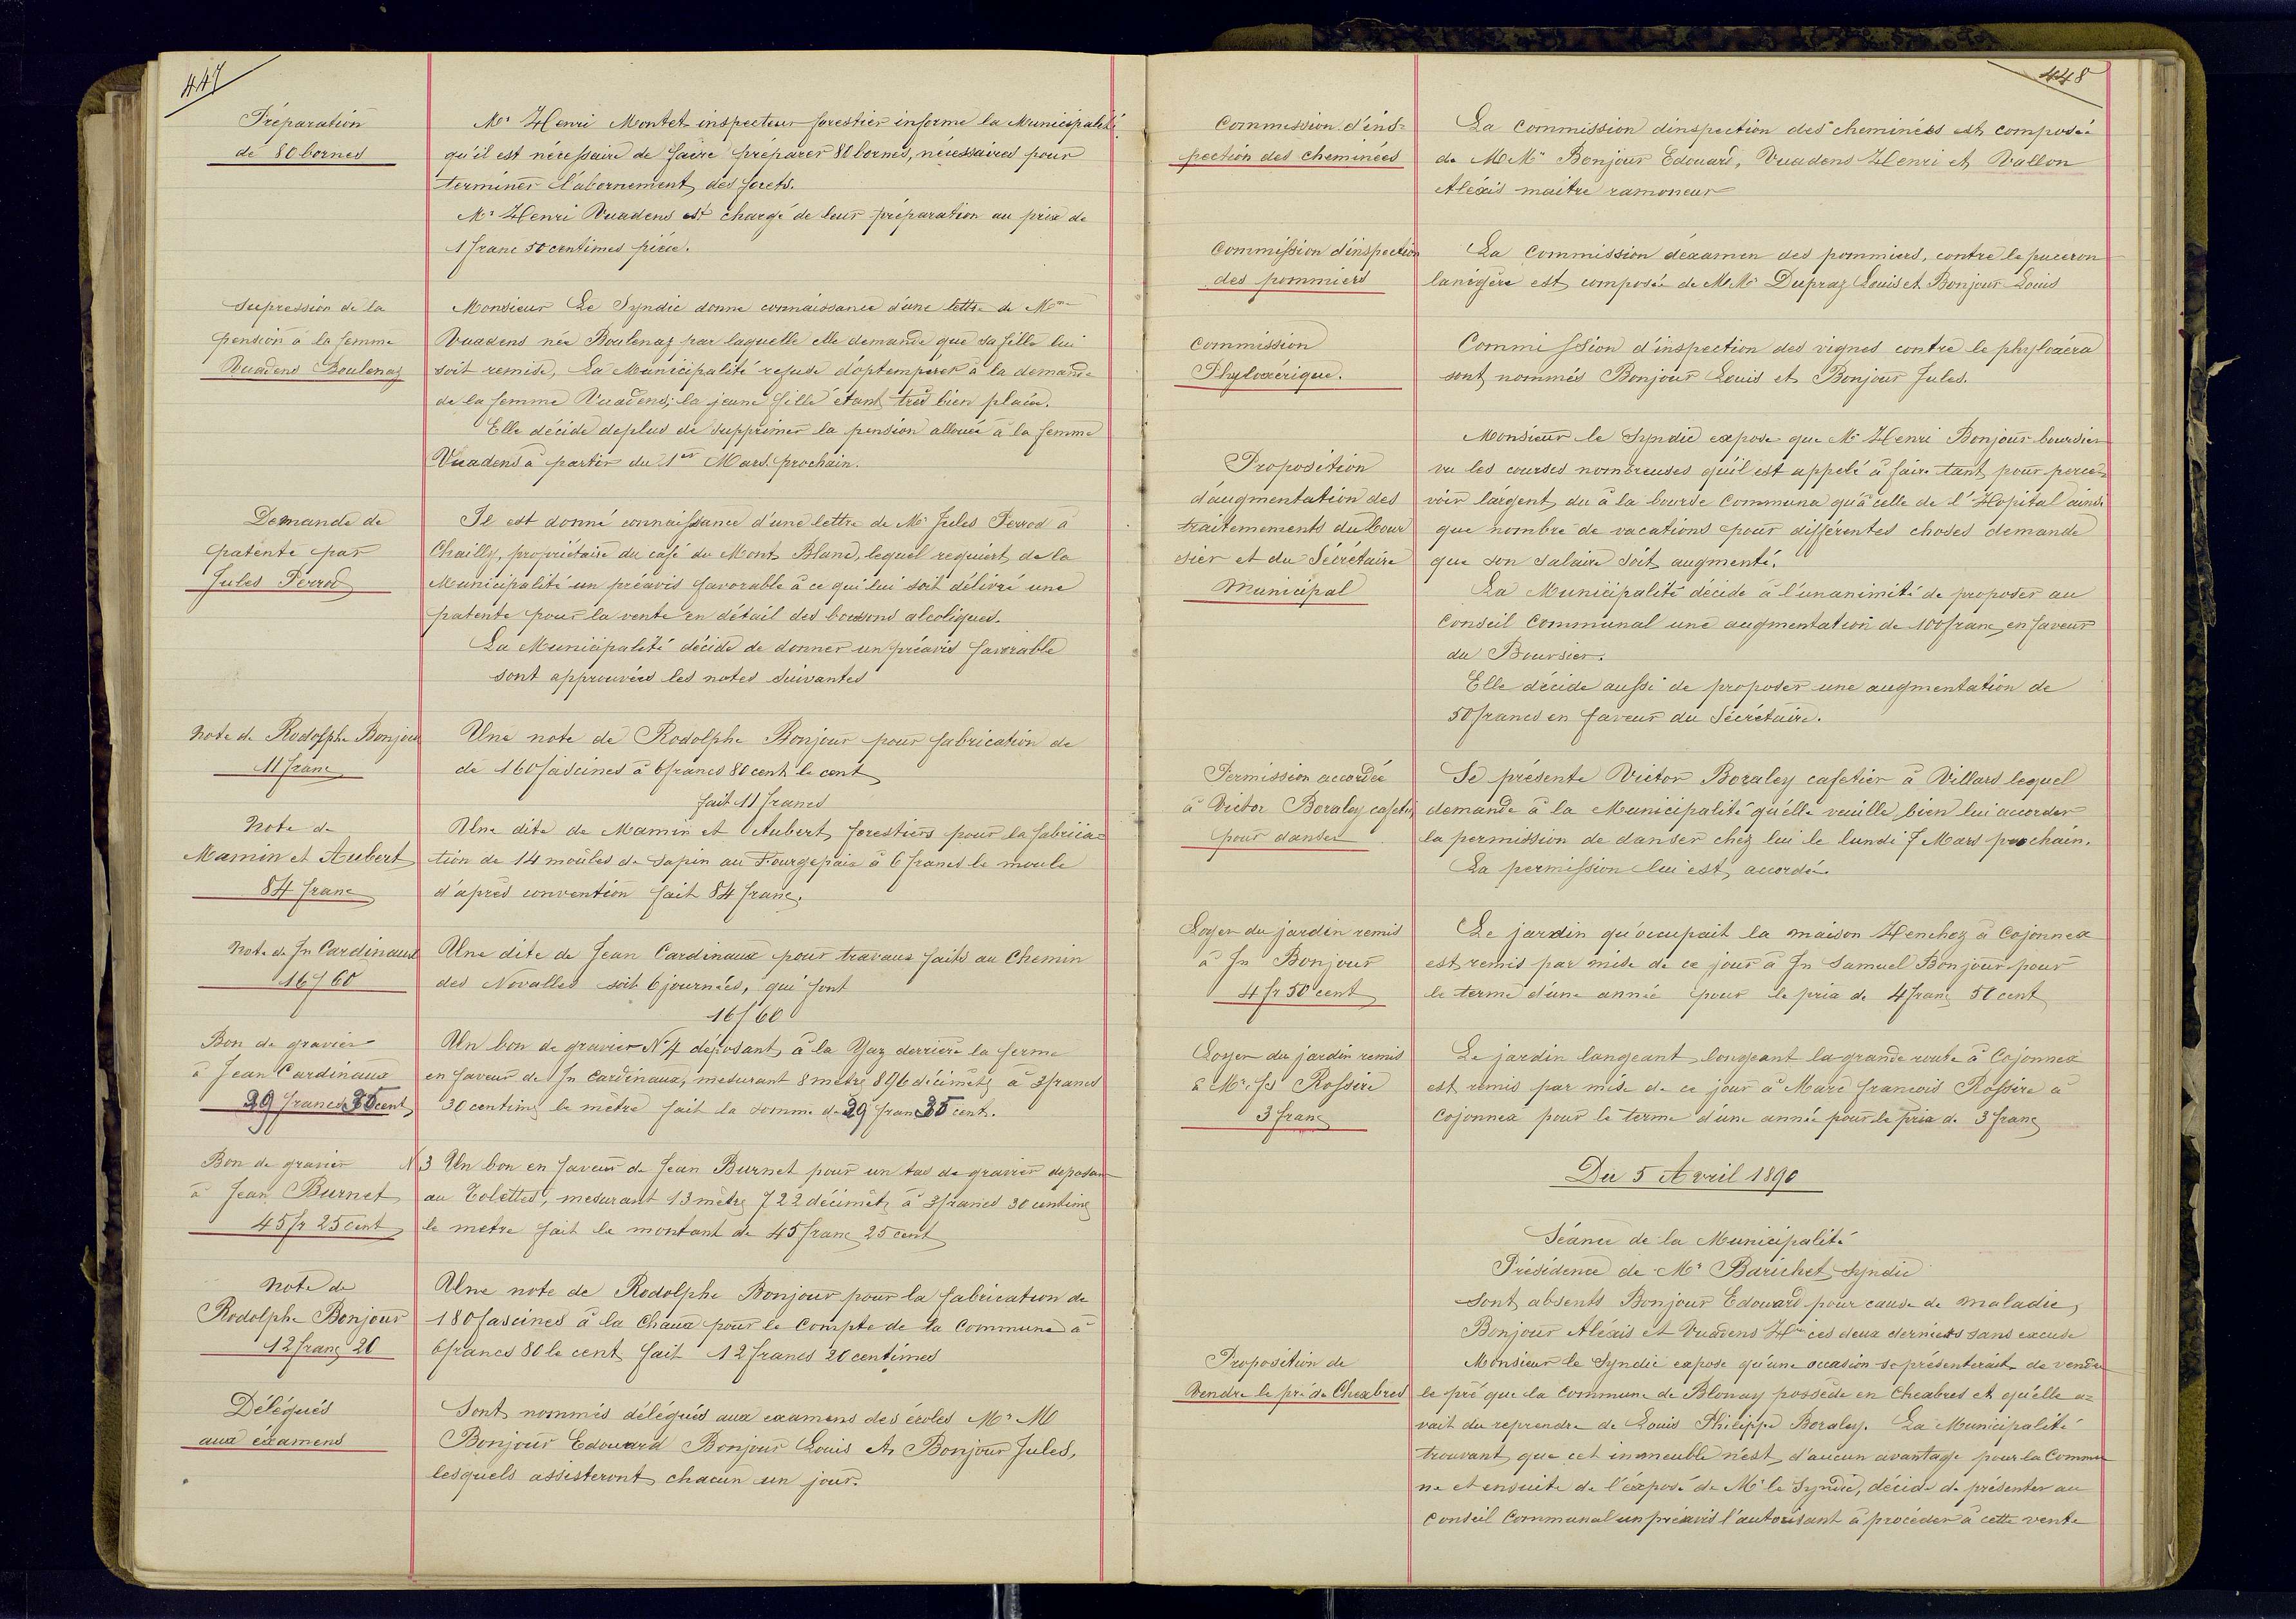 447
Préparation
de 80 bornes
Mr Henri Montet inspecteur forestier informe la Municipalité
qu'il est nécessaire de faire préparer 80 bornes, nécessaires pour
terminer l'abornement des forets.
Mr Henri Vuadens est chargé de leur préparation au prix de
1 franc 50 centimes pièce.
Supression de la
pension à la femme
Vuadens Boulenaz
Monsieur Le Syndic donne connaissance d'une lettre de Mme
Vuadens née Boulenaz par laquelle elle demande que sa fille lui
soit remise, La Municipalité refuse d'optempérer à la demande
de la femme Vuadens, la jeune fille étant très bien placée.
Elle décide deplus de supprimer la pension allouée à la femme
Vuadens à partir du 1er Mars prochain.
Demande de
patente par
Jules Perrod
Il est donné connaissance d'une lettre de Mr Jules Perrod à
Chailly, propriétaire du café du Mont Blanc, lequel requiert de la
Municipalité un préavis favorable à ce qui lui soit délivré une
patente pour la vente en détail des boissons alcoliques.
La Municipalité décide de donner un préavis favorable
sont approuvées les notes suivantes
Note de Rodolphe Bonjour
11 franc
Une note de Rodolphe Bonjour pour fabrication de
de 160 fascines à 6 francs 80 cent le cent
fait 11 francs
Note de
Mamin et Aubert
84 franc
Une dite de Mamin et Aubert forestiers pour la fabrica=
tion de 14 moûles de sapin au Fourgepaix à 6 francs le moule
d'après convention fait 84 franc.
Note de Jn Cardinaux
16f 60
Une dite de Jean Cardinaux pour travaux faits au Chemin
des Novalles soit 6 journées, qui font
16f 60
Bon de gravier
à Jean Cardinaux
29 francs 35 cent
Un bon de gravier No 4 déposant à la Yaz derrière la ferme
en faveur de Jn Cardinaux, mesurant 8 mètre 896 décimèts à 3 francs
30 centimes le mètre fait la somme de 29 franc 35 cent.
Bon de gravier
à Jean Burnet
45 fr 25 cent
N 3 Un bon en faveur de Jean Burnet pour un tas de gravier deposant
au Tolettes, mesurant 13 mètrs 722 décimèts à 3 francs 30 centimes
le metre fait le montant de 45 franc 25 cent
Note de
Rodolphe Bonjour
12 franc 20
Une note de Rodolphe Bonjour pour la fabrication de
180 fascines à la Chaux pour le Compte de la Commune à
6 francs 80 le cent fait 12 francs 20 centimes
Délégués
aux examens
Sont nommés délégués aux examens des écoles Mr M
Bonjour Edouard Bonjour Louis et Bonjour Jules,
lesquels assisteront chacun un jour.
448
Commission d'ins=
pection des cheminées
La Commission d'inspection des cheminées est composée
de M Mr Bonjour Edouard, Vuadens Henri et Vallon
Aléxis maître ramoneur
Commission d'inspection
des pommiers
La Commission d'éxamen des pommiers, contre le puceron
lanigère est composée de M Mr Dupraz Louis et Bonjour Louis
Commission
Phyloxérique.
Commission d'inspection des vignes contre le phyloxéra
sont nommés Bonjour Louis et Bonjour Jules.
Proposition
d'augmentation des
traitemements du Bour
sier et du Sécrétaire
Municipal
Monsieur le Syndic expose que Mr Henri Bonjour boursier
vu les courses nombreuses qu'il est appelé à faire tant pour perce=
voir l'argent du à la bourse Communa qu'à celle de l'Hopital ainsi
que nombre de vacations pour différentes choses demande
que son salaire soit augmenté.
La Municipalité décide à l'unanimité de proposer au
Conseil Communal une augmentation de 100 franc en faveur
du Boursier.
Elle décide aussi de proposer une augmentation de
50 francs en faveur du Sécrétaire.
Permission accordée
à Victor Boraley cafetier
pour danser
Se présente Victor Boraley cafetier à Villard lequel
demande à la Municipalité qu'elle veuille bien lui accorder
la permission de danser chez lui le lundi 7 Mars prochain.
La permission lui est accordée
Loyer du jardin remis
à Jn Bonjour
4 fr 50 cent
Le jardin qu'occupait la maison Henchoz à Cojonnex
est remis par mise de ce jour à Jn Samuel Bonjour pour
le terme d'une année pour le prix de 4 franc 50 cent
Loyer du jardin remis
à Mc fs Rossire
3 franc
Le jardin langeant longeant la grande route à Cojonnex
est remis par mise de ce jour à Marc françois Rossire à
Cojonnex pour le terme d'une année pour le prix de 3 franc
Du 5 Avril 1890
Séance de la Municipalité
Présidence de Mr Barichet Syndic
Sont absents Bonjour Edouard pour cause de maladie,
Bonjour Aléxis et Vuadens Hri ces deux derniers sans excuse
Proposition de
Vendre le pré de Chexbres
Monsieur le Syndic expose qu'une occasion se présenterait de vendre
le pré que la Commune de Blonay possède en Chexbres et qu'elle a=
vait du reprendre de Louis Philippe Boraley. La Municipalité
trouvant que cet immeuble n'est d'aucun avantage pour la Commu
ne et ensuite de l'éxposé de Mr le Syndic, décide de présenter au
Conseil Communal un préavis l'autorisant à procéder à cette vente